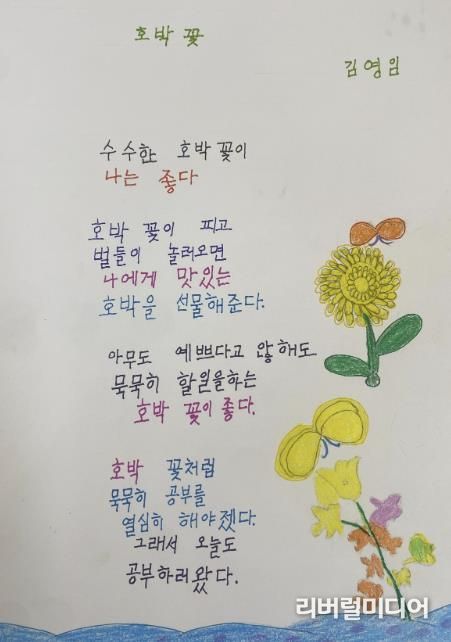 호박 꽃
김영임
수수한 호박 꽃이
나는 좋다
호박 꽃이 피고
벌들이 놀러오면
나에게 맛있는
호박을 선물해준다.
아무도 예쁘다고 않해도
묵묵히 할일을하는
호박 꽃이 좋다.
호박 꽃처럼
묵묵히 공부를
열심히 해야젰다.
그래서 오늘도
공부하러왔다.
리버럴미디어